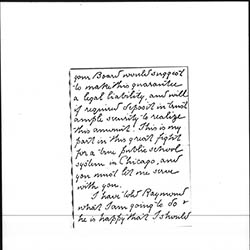 your Board would suggest
to make this guarantee
a legal liability, and will
if required deposit in trust
ample security to realize
this amount. This is my
part in this great fight
for a true public school
system in Chicago, and
you must let me serve
with you.
I have told Raymond
what I am going to do &
he is happy that I should